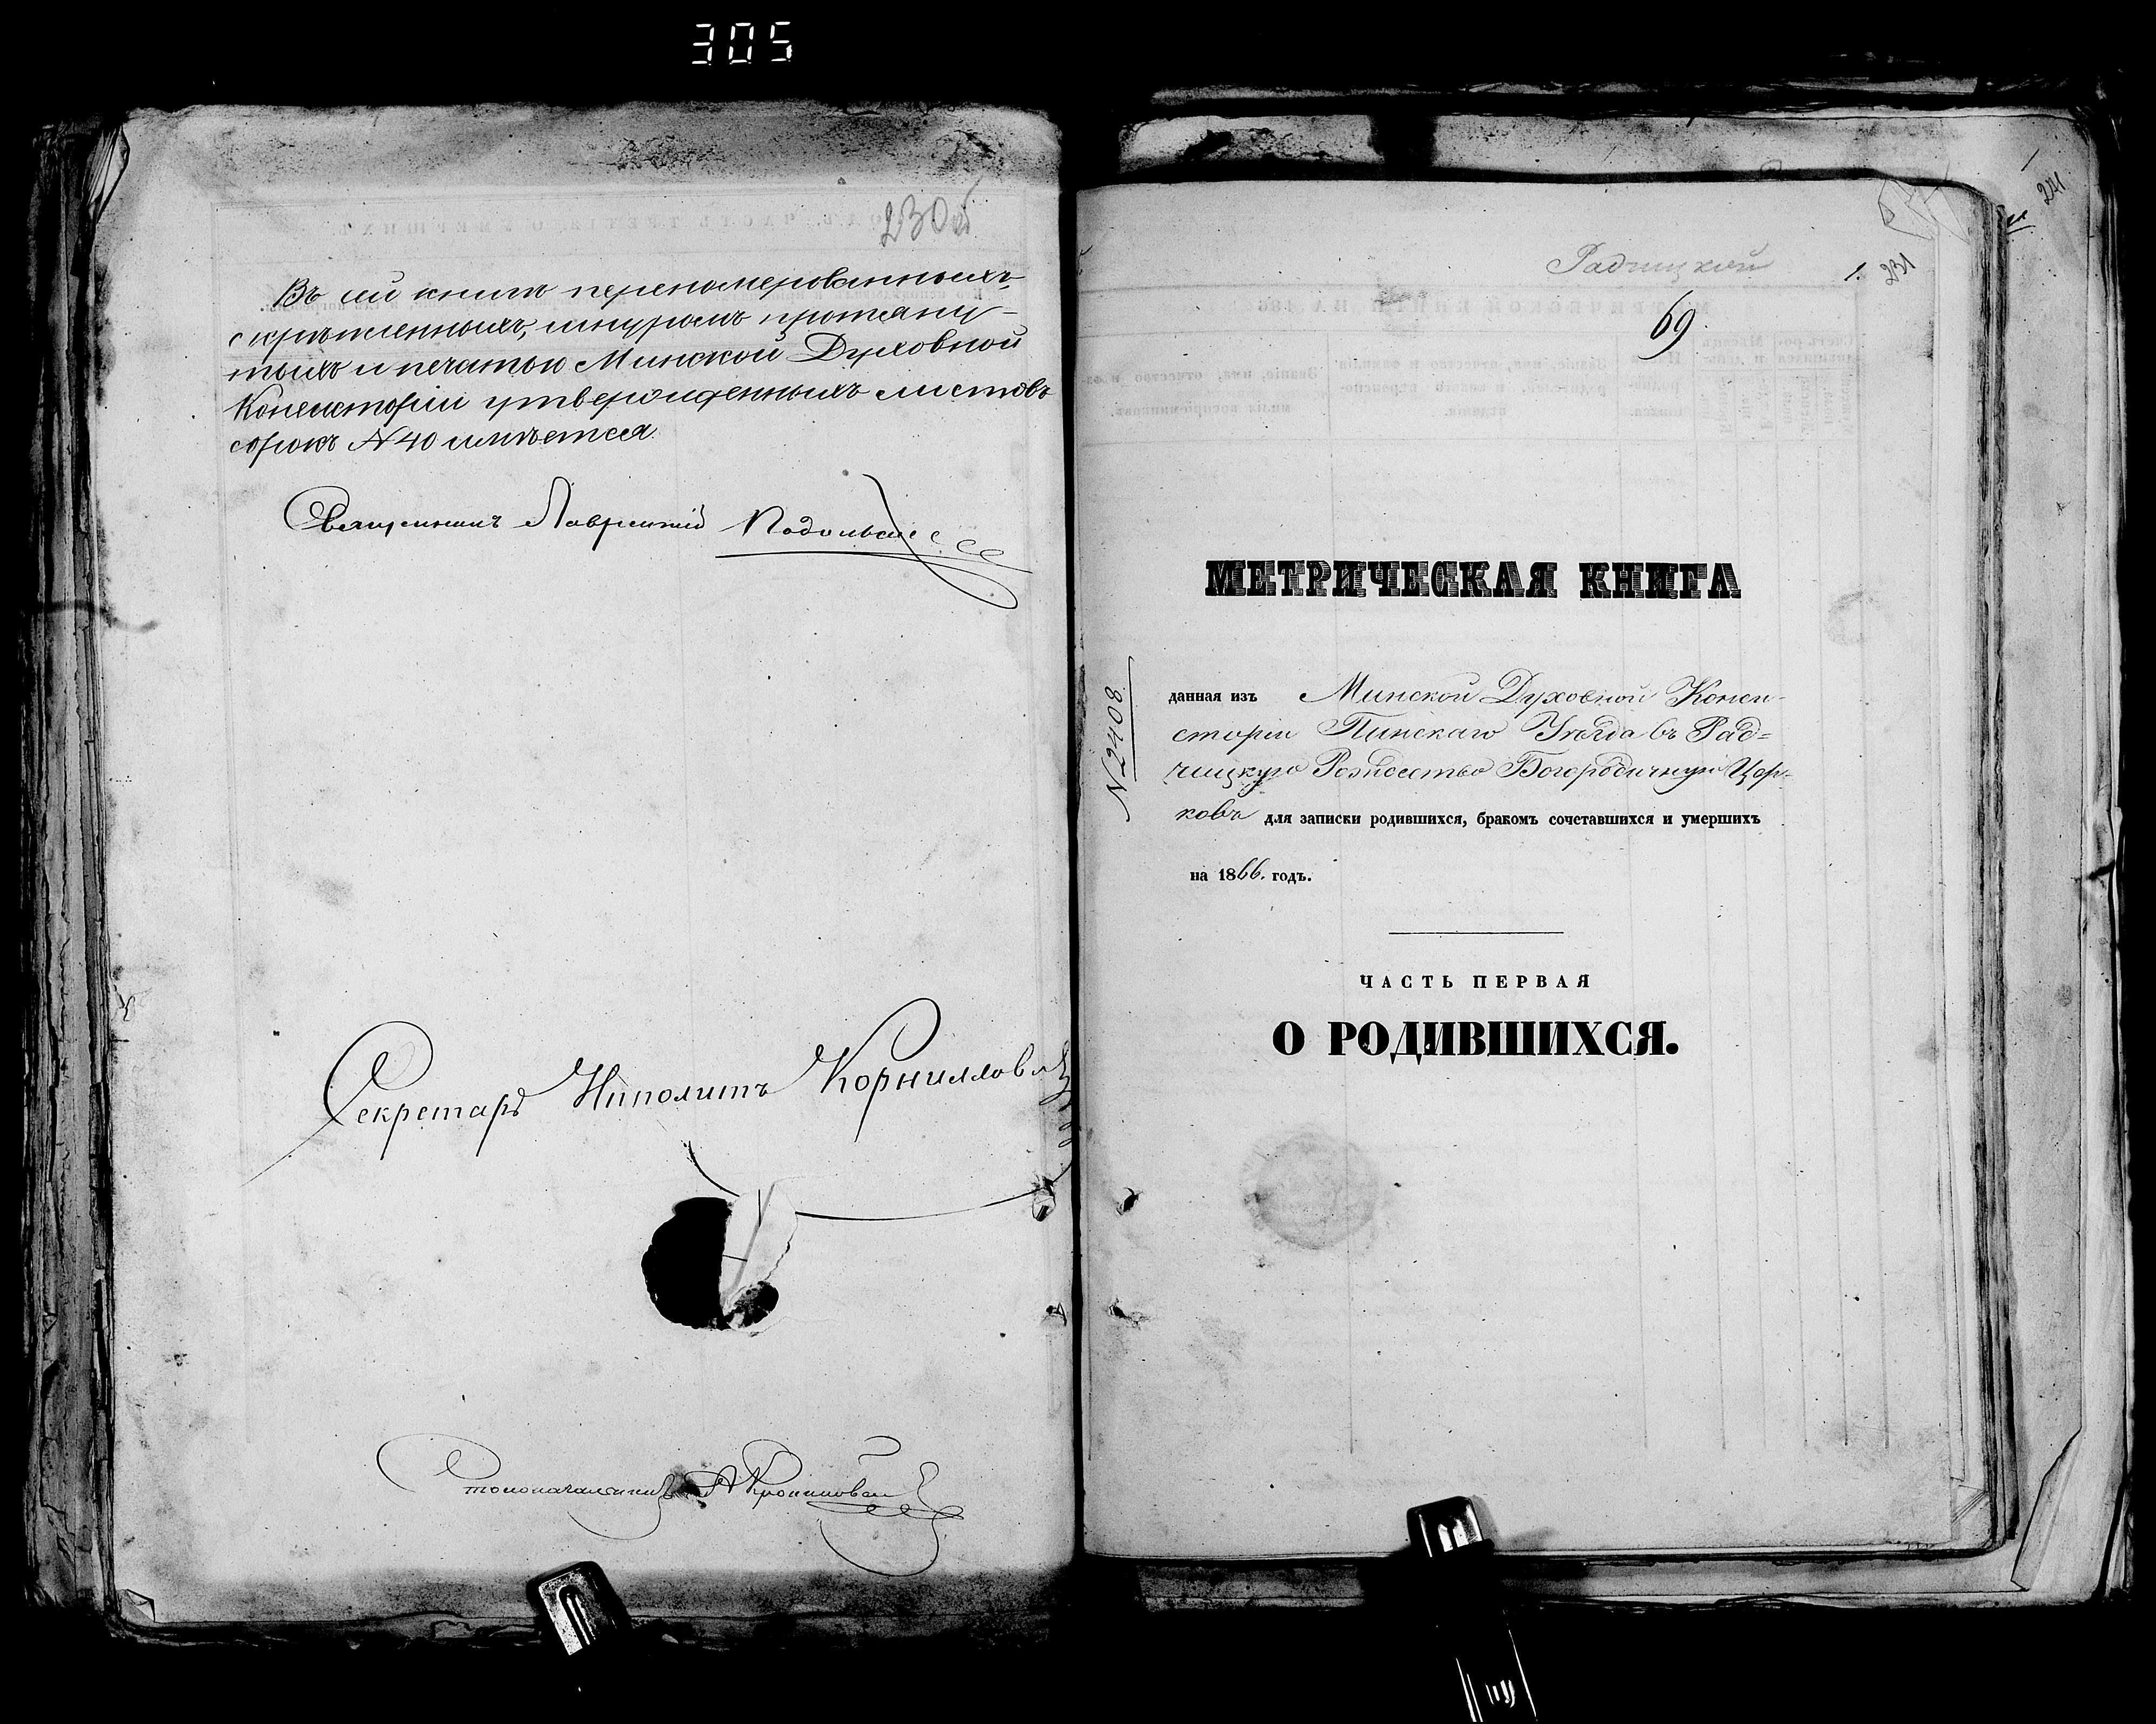 305
230 об
Въ сей книге перенумерованныхъ,
скрѣпленныхъ, шнуромъ протяну-
тыхъ и печатью Минской Духовной
Консисторіи утвержденныхъ листовъ
сорокъ N 40 имѣется.
Священникъ Лаврентій Подольскі
Секретарь Ипполитъ Корниллов
Столоначальникъ
Радчицкой
1. 231
241
69
МЕТРИЧЕСКАЯ КНИГА
N 2408
данная изъ Минской Духовной Конси-
сторіи Пинскаго Уѣзда въ Рад=
чицкую Рождество Богородичную Цер-
ковь для записки родившихся, бракомъ сочетавшихся и умершихъ
на 1866. годъ.
ЧАСТЬ ПЕРВАЯ
О РОДИВШИХСЯ.